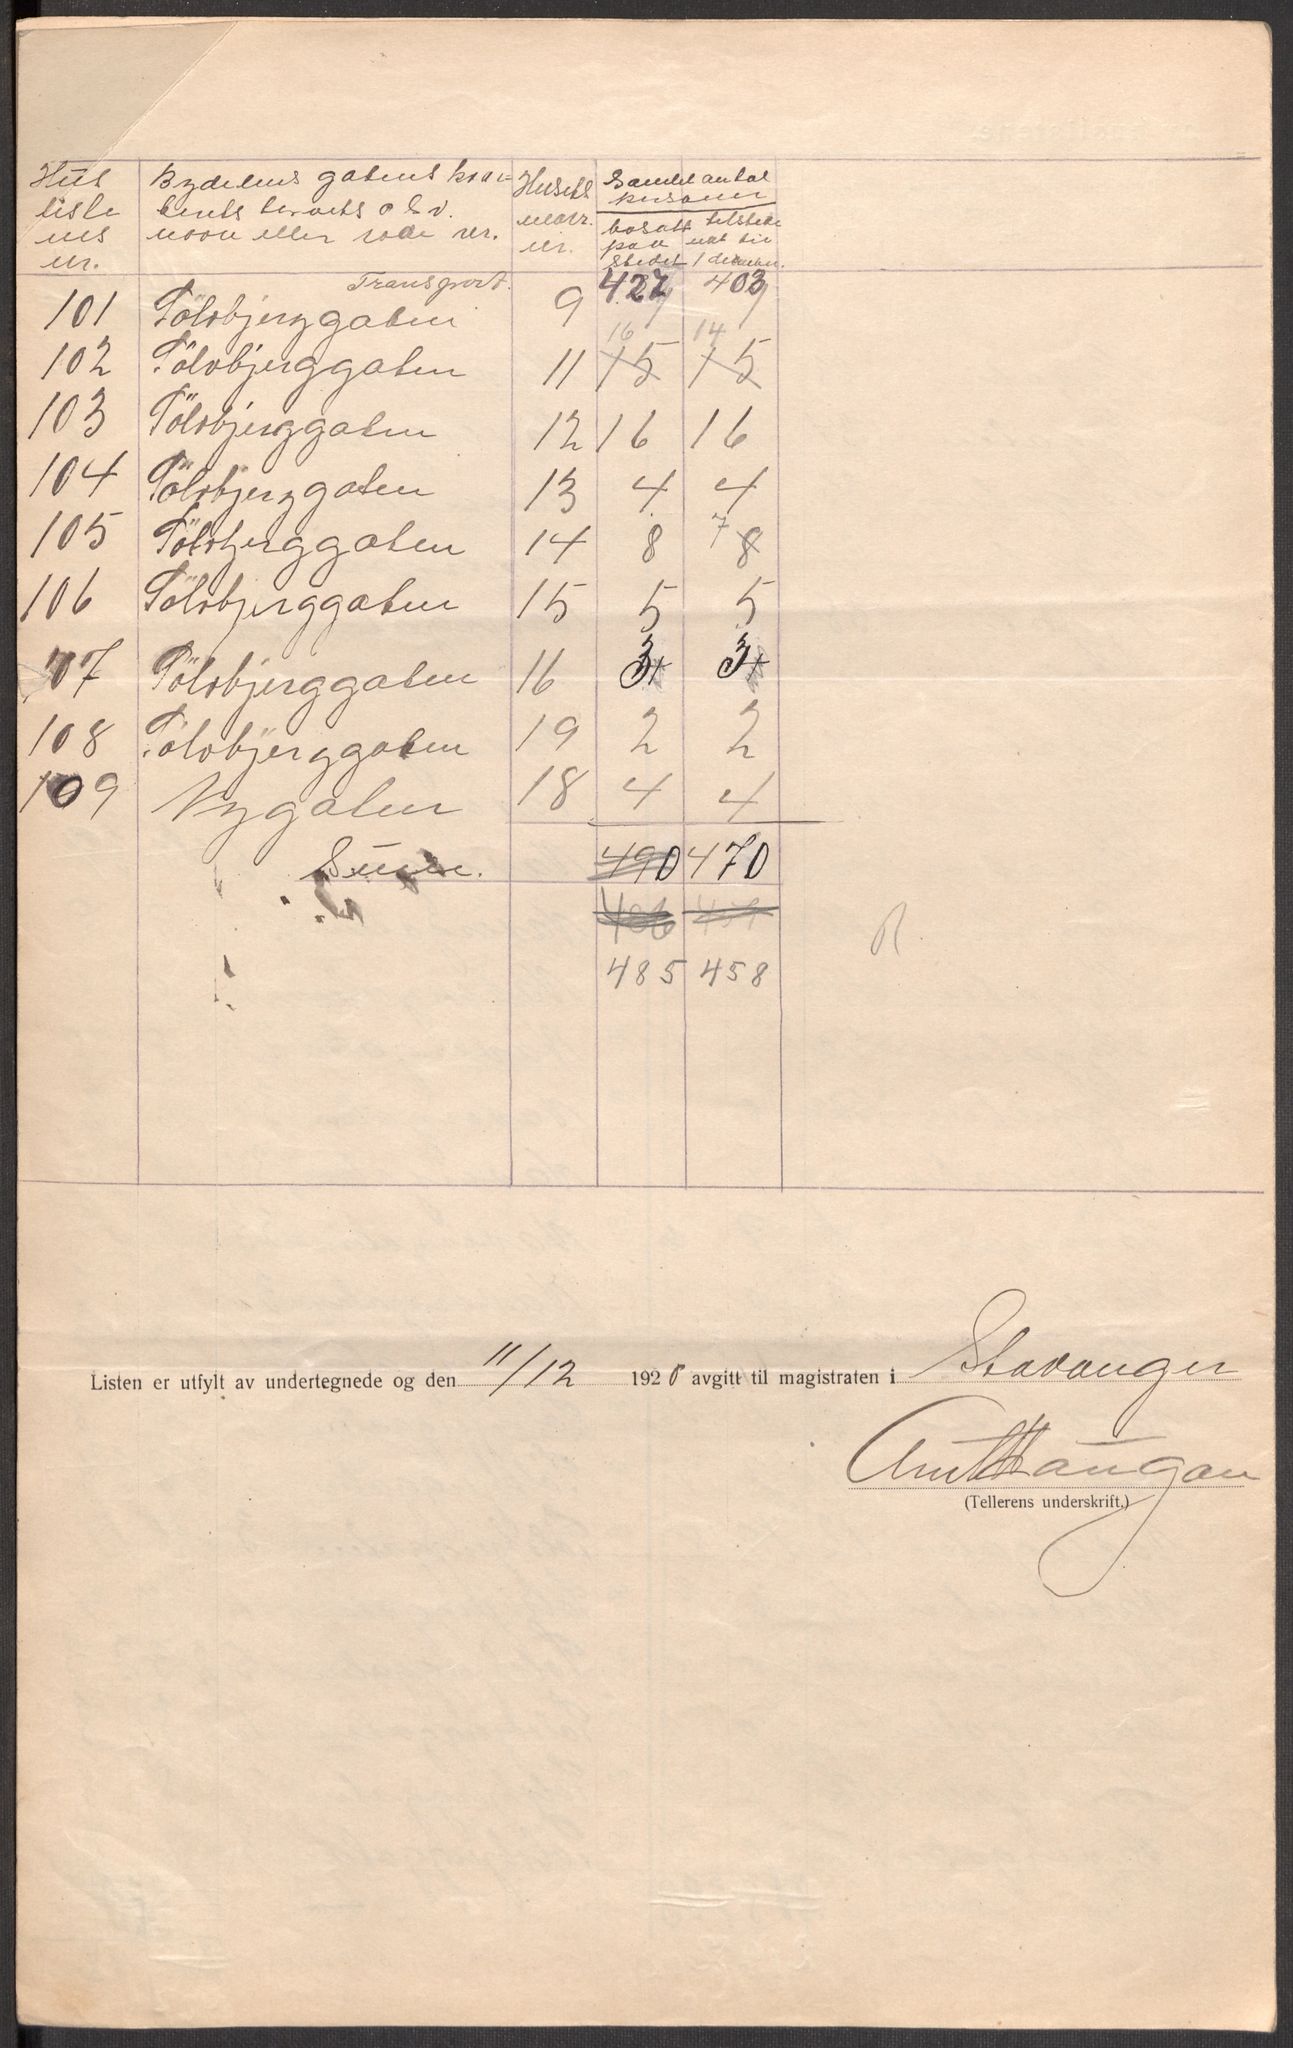 Hus Bydelens gatens kvar- Husets Samlet antal
liste tents torvets o.s.v. matr. personer
nes navn eller rode nr. nr. bosatt tilstede
nr. paa nat til
stedet 1 december.
Transport. 427 403
101 Tölvbjerggaten 9 9 9
16 14
102 Tölvbjerggaten 11 15 15
103 Tölvbjerggaten 12 16 16
104 Tölvbjerggaten 13 4 4
105 Tölvbjerggaten 14 8 7 8
106 Tölvbjerggaten 15 5 5
107 Tölvbjerggaten 16 3 3
108 Tölvbjerggaten 19 2 2
109 Nygaten 18 4 4
Sum. 490 470
485 458
Listen er utfylt av undertegnede og den 11/12 1920 avgitt til magistraten i Stavanger
(Tellerens underskrift.)